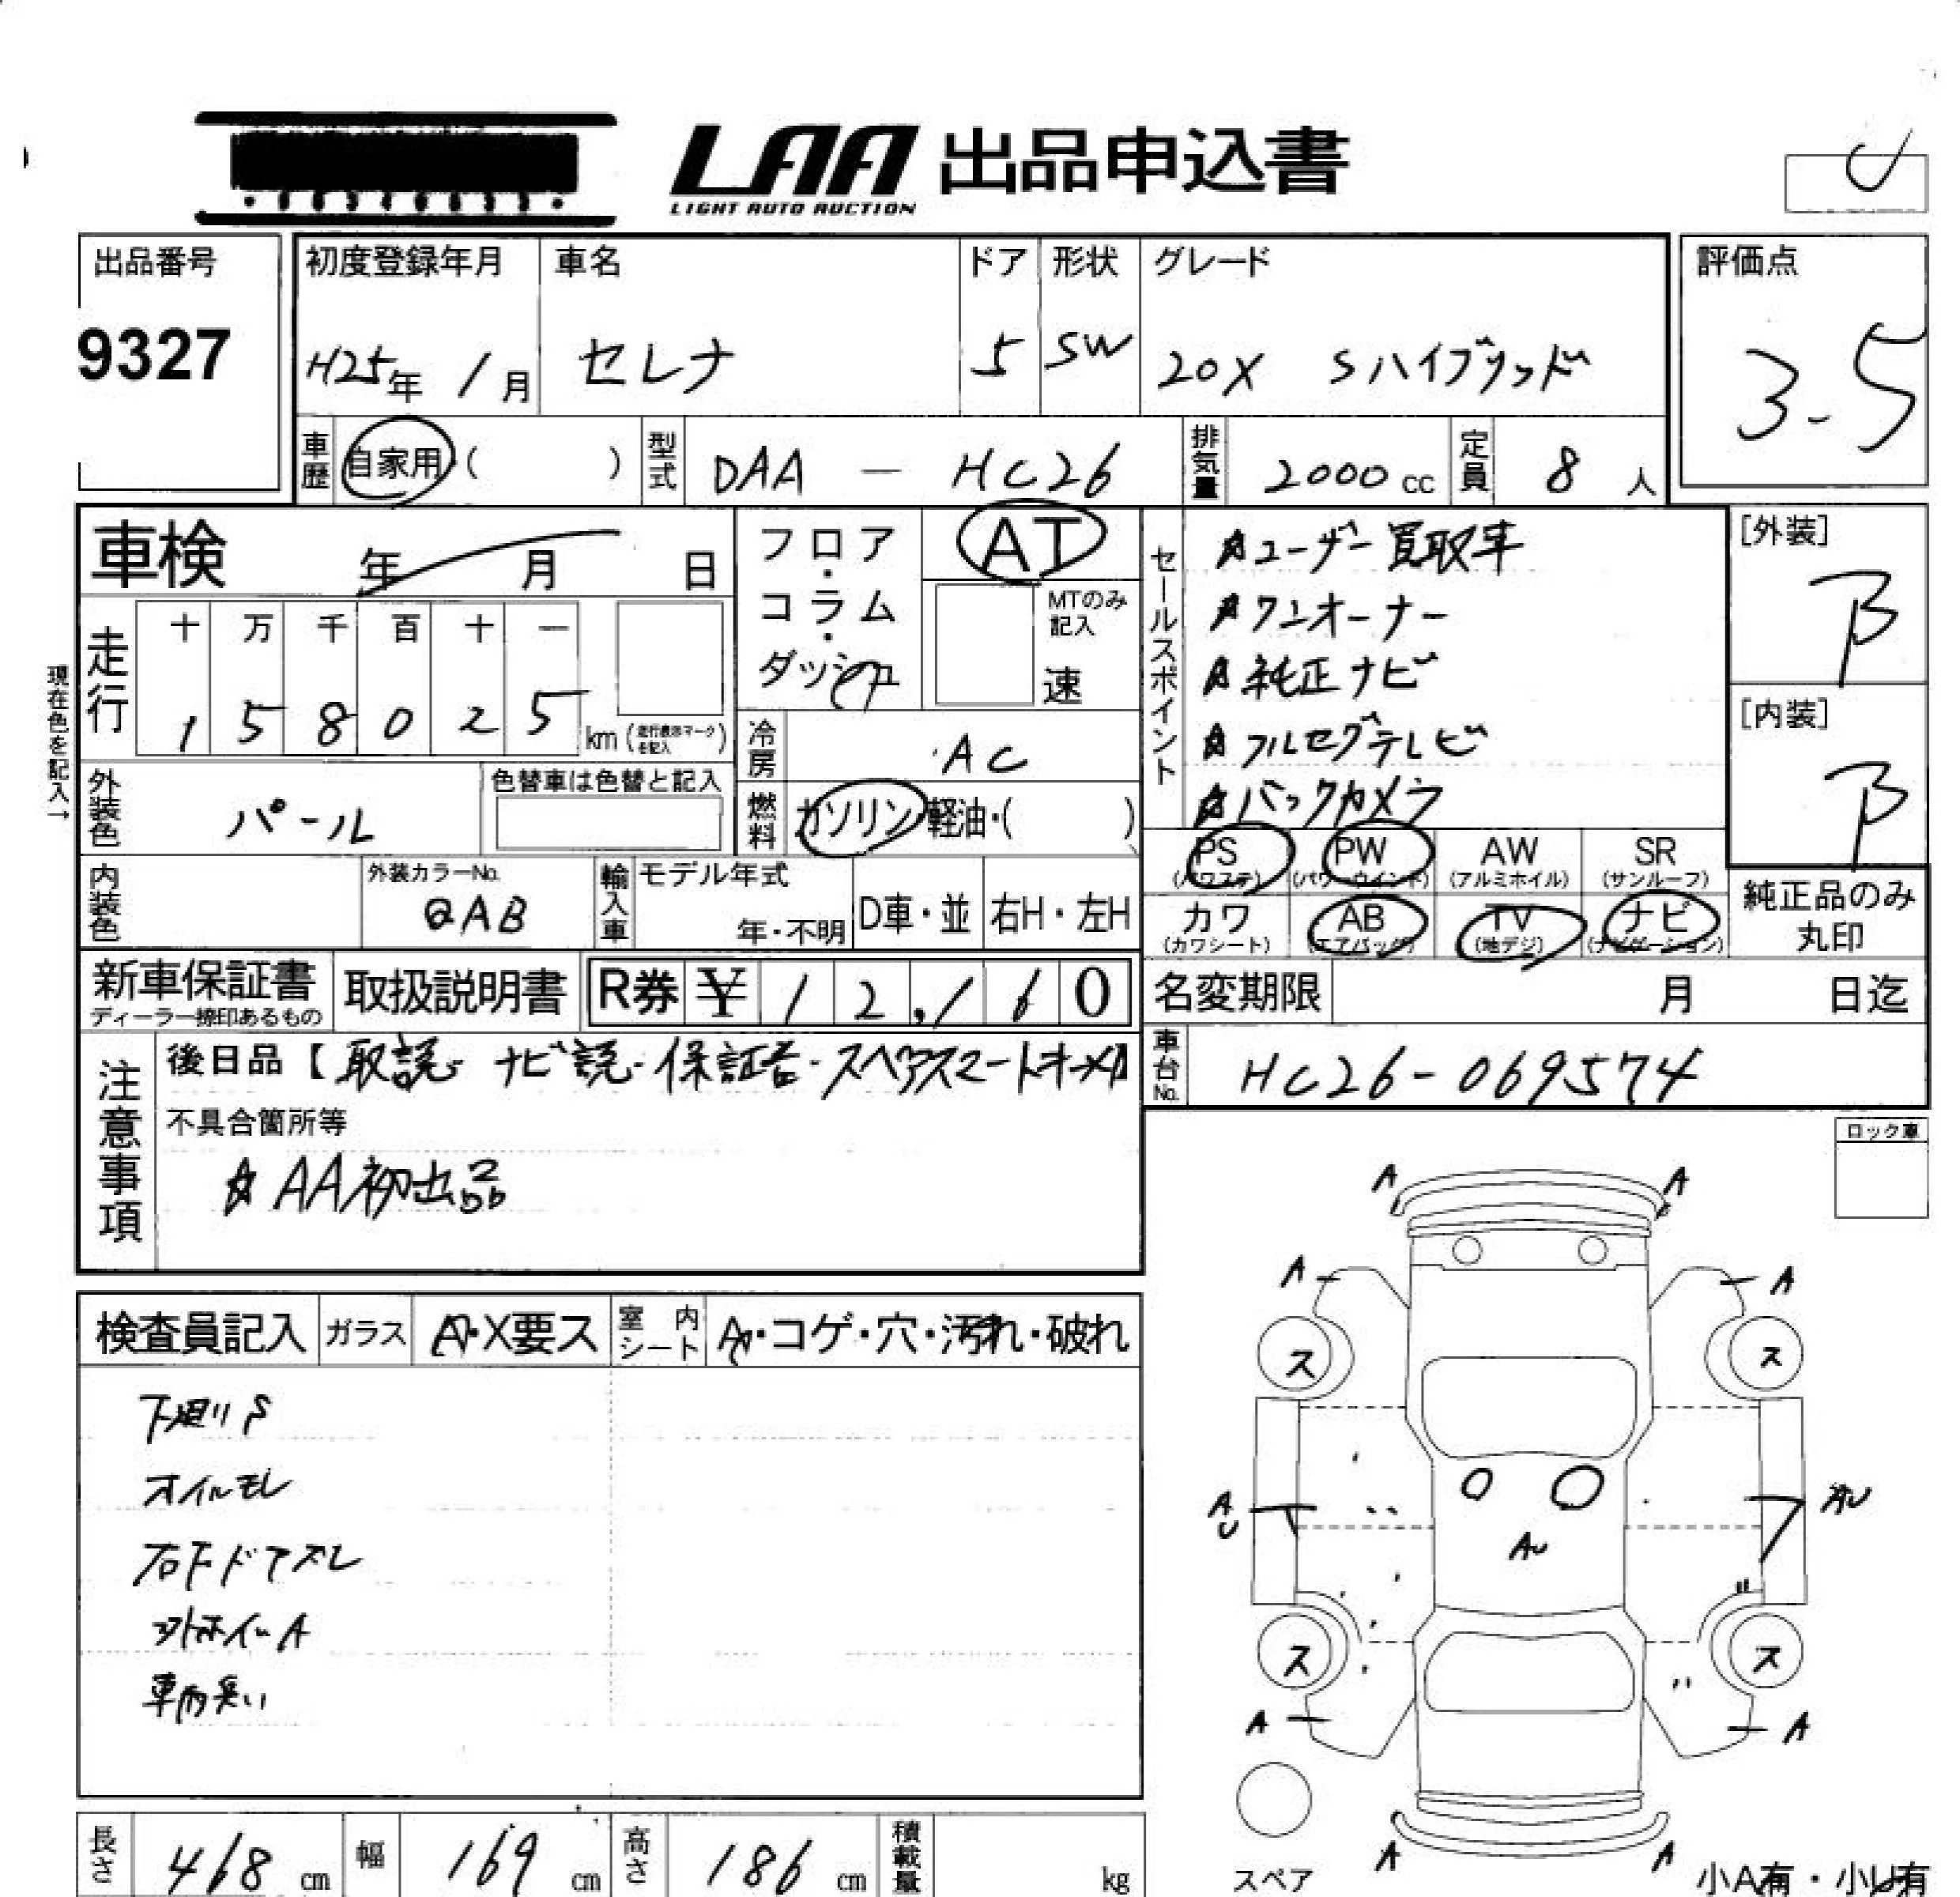 LAA 出品申込書
LIGHT AUTO AUCTION
出品番号 初度登録年月 車名 ドア 形状 グレード 評価点
9327 H25年 1月 セレナ 5 SW 20X Sハイブリッド 3.5
車歴 自家用・( ) 型式 DAA - HC26 排気量 2000cc 定員 8人
車検 年 月 日 フロア・コラム・ダッシュ AT セールスポイント ☆ユーザー買取車 [外装] B
MTのみ記入 速 ☆ワンオーナー
走行 十 万 千 百 十 一 ☆純正ナビ [内装] B
1 5 8 0 2 5 km (走行表示マークを記入) ☆フルセグテレビ
現在色を記入→
冷房 AC ☆バックカメラ
外装色 パール 色替車は色替と記入 燃料 ガソリン・軽油・( )
PS (パワステ) PW (パワーウインド) AW (アルミホイル) SR (サンルーフ)
内装色 外装カラーNo. QAB 輸入車 モデル年式 年・不明 D車・並 右H・左H
カワ (カワシート) AB (エアバッグ) TV (地デジ) ナビ (ナビゲーション) 純正品のみ丸印
新車保証書 ディーラー捺印あるもの 取扱説明書 R券 ¥12,160 名変期限 月 日迄
注意事項 後日品【取説・ナビ説・保証書・スペアスマートキー 車台No. HC26-069574
不具合箇所等
☆AA初出品
ロック車
A A
A A
検査員記入 ガラス A・X要ス 室内シート A・コゲ・穴・汚れ・破れ
ス ス
下廻りS
オイルモレ
A U AU
AU
右Fドアズレ
ホイールA
ス ス
車内臭い
A A
長さ 468cm 幅 169cm 高さ 186cm 積載量 kg
A A
スペア 小A有・小U有